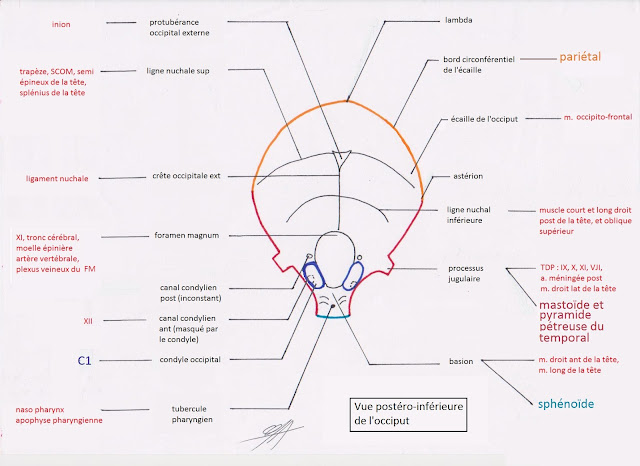 inion
protubérance
occipital externe
lambda
bord circonférentiel
de l'écaille
pariétal
trapèze, SCOM, semi
épineux de la tête,
splénius de la tête
ligne nuchale sup
écaille de l'occiput
m. occipito-frontal
ligament nuchale
crête occipitale ext
astérion
ligne nuchal
inférieure
muscle court et long droit
post de la tête, et oblique
supérieur
XI, tronc cérébral,
moelle épinière
artère vertébrale,
plexus veineux du FM
foramen magnum
processus
jugulaire
TDP : IX, X, XI, VJI,
a. méningée post
m. droit lat de la tête
mastoïde et
pyramide
pétreuse du
temporal
canal condylien
post (inconstant)
XII
canal condylien
ant (masqué par
le condyle)
C1
condyle occipital
basion
m. droit ant de la tête,
m. long de la tête
sphénoïde
naso pharynx
apophyse pharyngienne
tubercule
pharyngien
Vue postéro-inférieure
de l'occiput